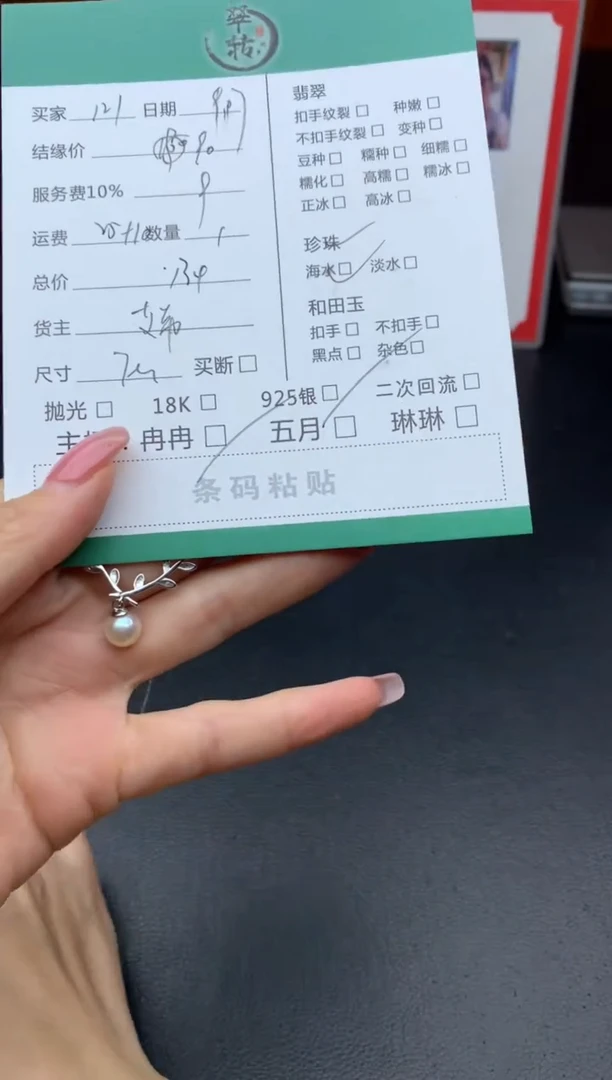 翠转
买家 121 日期
结缘价 90
服务费10%
运费 数量 1
总价 134
货主
尺寸 买断
抛光 18K 925银 二次回流
冉冉 五月 琳琳
条码粘贴
翡翠
扣手纹裂 种嫩
不扣手纹裂 变种
豆种 糯种 细糯
糯化 高糯 糯冰
正冰 高冰
珍珠
海水 淡水
和田玉
扣手 不扣手
黑点 杂色